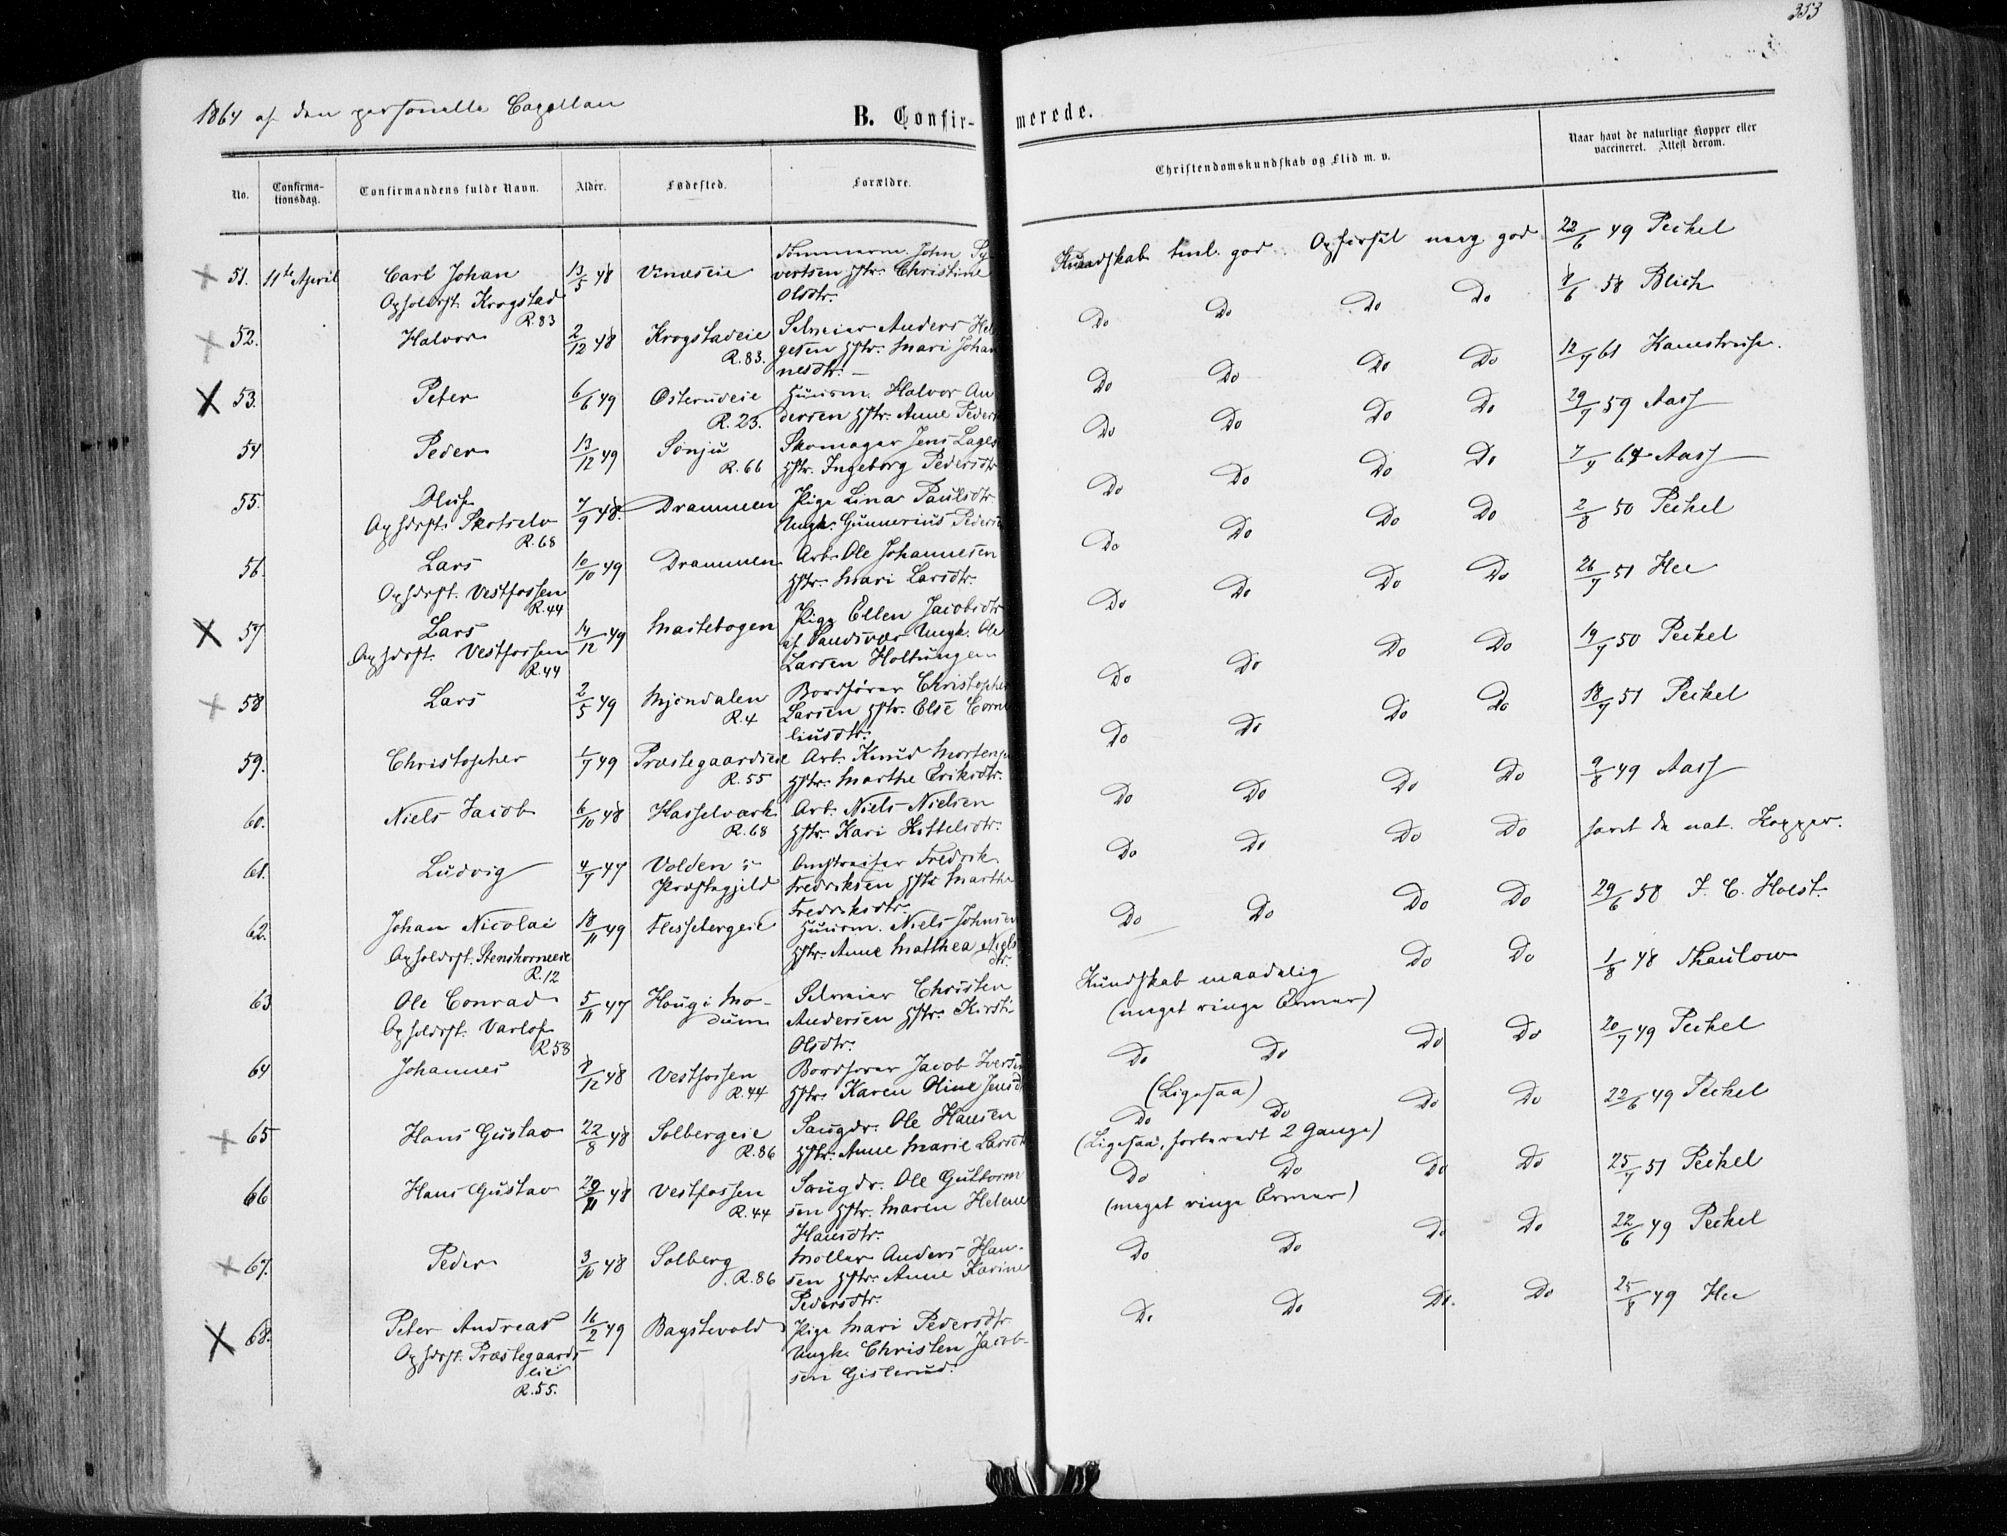 353
1864 af den personelle Capellan
B. Confir-
merede.
No.
Confirma-
tionsdag.
Confirmandens fulde Navn.
Alder.
Fødested.
Forældre.
Christendomskundskab og Flid m. v.
Naar havt de naturlige Kopper eller
vaccineret. Attest derom.
51. 11te April Carl Johan 13/5 48 Vinæseie
Opholdsst. Krogstad
R.83
Tømmerm. John Sy-
vertsen Hstr. Christine
Olsdtr.
Kundskab tml. god. Opførsel meg. god 22/6 49 Peckel
52. Halvor 2/12 48 Krogstadeie
R.83.
Selveier Anders Hel
gesen Hstr. Mari Johan
nesdtr.
Do Do Do Do 7/6 58 Blich
53. Peter 6/6 49 Østerudeie
R.23.
Huusm. Halvor An
dersen Hstr. Anne Peders
Do Do Do Do 12/7 61 Kamstrup.
54 Peder 13/12 49 Sønju
R.66
Skomager Jens
Hstr. Ingeborg Pedersdtr
Do Do Do Do 29/7 59 Aass
55. Oluf 7/9 48. Drammen
Ophdsst. Skotselv
R.68
Pige Lina Paulsdtr
Ungk. Gunnerius Peders
Do Do Do Do 7/7 64 Aass
56 Lars 10/10 49 Drammen
Ophdsst. Vestfossen
R.44
Arb. Ole Johannesen
Hstr. Mari Larsdtr.
Do Do Do Do 2/8 50 Peckel
57 Lars 14/12 49 Mastebogen
Ophdsst. Vestfossen
R.44
Pige Ellen Jacobsdtr
af Sandsvær Ungk. Ole
Larsen Holtungen
Do Do Do Do 26/7 51 Hee
58 Lars 2/5 49 Mjøndalen
R.4
Bordfører Christopher
Larsen Hstr. Else Corne
liusdtr.
Do Do Do Do 19/7 50 Peckel
59. Christopher 1/7 49 Præstegaardseie
R.55
Arb. Knud Mortensen
Hstr. Marthe Eriksdtr.
Do Do Do Do 18/7 51 Peckel
60. Niels Jacob 6/10 48 Hasselværk
R.68
Arb. Niels Nielsen
Hstr. Kari Kittelsdtr.
Do Do Do Do 9/8 49 Aass
61. Ludvig 4/7 47 Volden i
Præstegjeld
Fredrik
Fredriksen Hstr Marthe
Fredriksdtr.
Do Do Do Do havt de nat. Kopper.
62. Johan Nicolai 18/11 49 Flessebergeie
Opholdsst. Stenshorneeie
R.12
Huusm. Niels Johnsen
Hstr. Anne Matthea Niels
dtr.
Do Do Do Do 29/6 50 J. C. Holst.
63 Ole Conrad 5/11 47 Haug i Mo-
dum
Opholdsst. Varlof
R 58
Selveier Christen
Andersen Hstr. Kirsti
Olsdtr.
Kundskab maadelig
(meget ringe Evner)
Do Do 1/8 48 Thaulow
64 Johannes 8/12 48 Vestfossen
R.44
Bordfører Jacob Iversen
Hstr. Karen Oline Jensdt
Do Do Do Do 20/7 49 Peckel
(Ligesaa)
65 Hans Gustav 22/8 48 Solbergeie
R.86
Saugdr. Ole Hansen
Hstr. Anne Marie Larsdt
Do Do Do Do 22/6 49 Peckel
(Ligesaa, forberedt 2 Gange)
66 Hans Gustav 29/11 48 Vestfossen
R.44
Saugdr. Ole Guttorm
sen Hstr. Maren Helene
Hansdtr.
Do Do Do Do 25/7 51 Peckel
(meget ringe Evner)
67. Peder 3/10 48 Solberg
R.86
Møller Anders Han-
sen Hstr. Anne Karine
Pedersdtr.
Do Do Do Do 22/6 49 Peckel
68. Peter Andreas 16/2 49 Bagstevold
Ophdsst. Præstegaards
eie
R.55.
Pige Mari Pedersdtr
Ungk. Christen Jacob-
sen Gislerud.
Do Do Do. Do 25/8 49 Hee